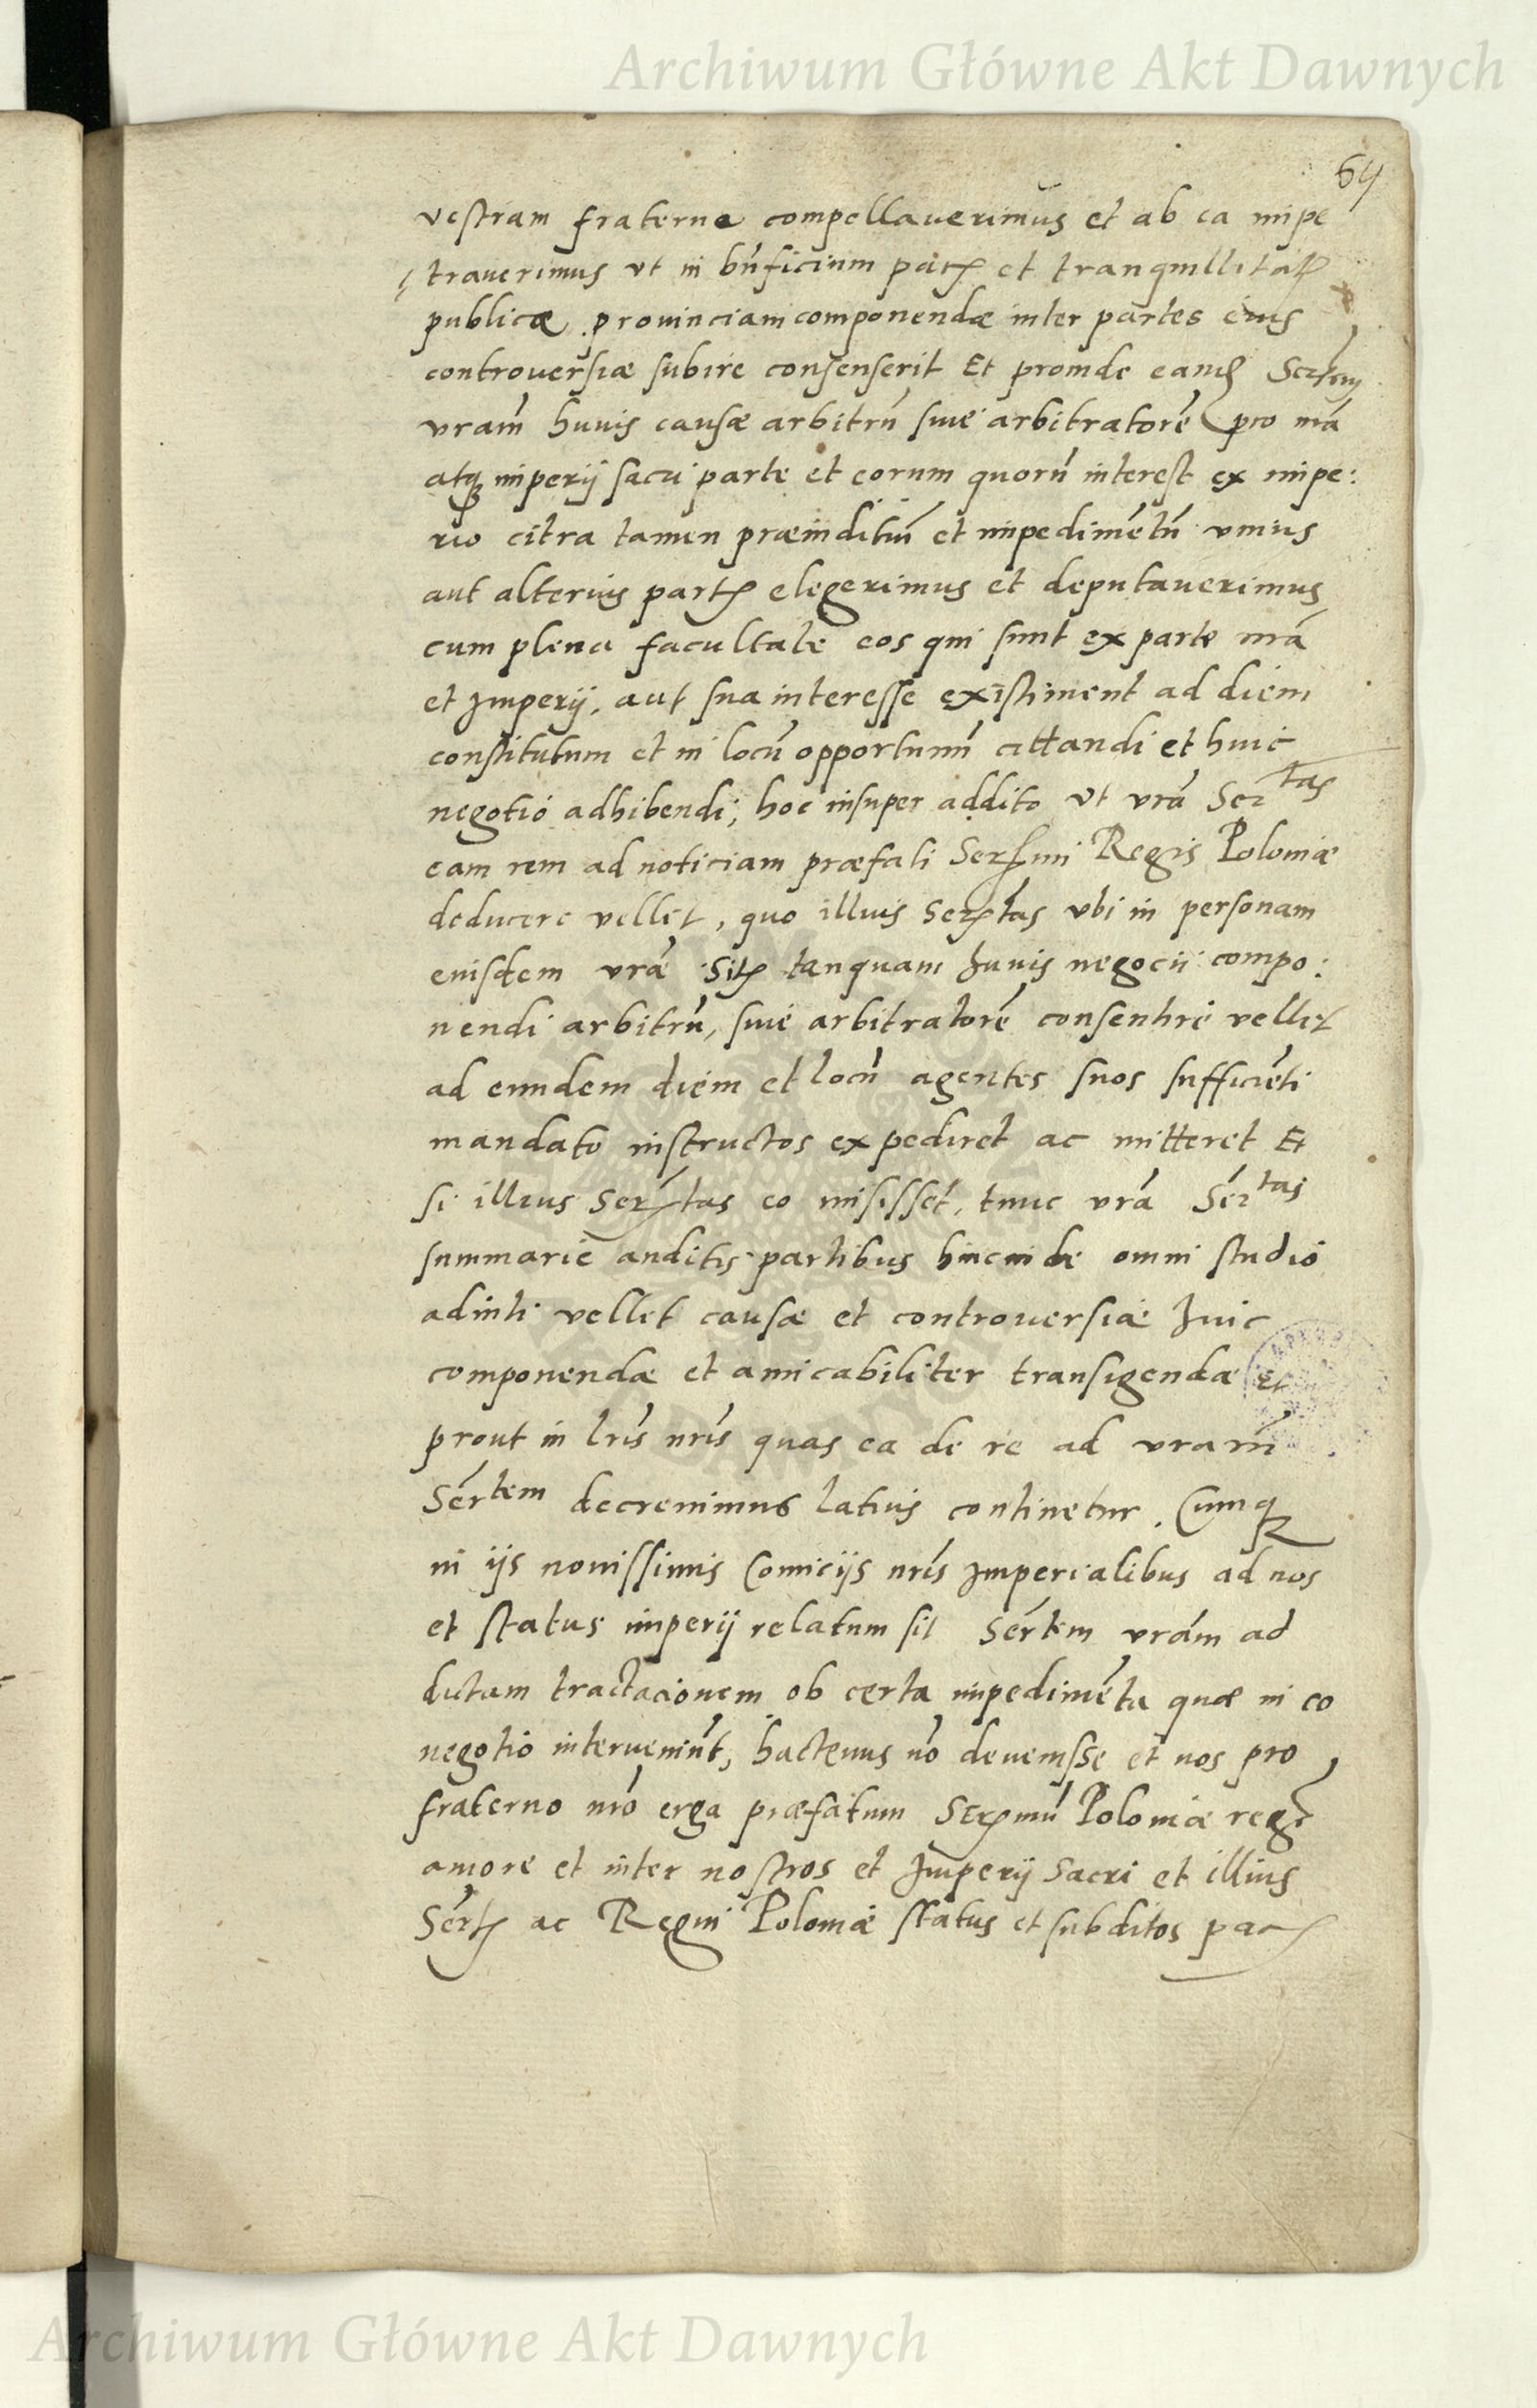 Archiwum Główne Akt Dawnych
64
vestram fraterne compellauerimus et ab ea impe
trauerimus vt in bn̄ficium pacꝭ et tranquillitatꝭ
publicæ prouinciam componendæ inter partes eius
controuersiæ subire consenserit Et proinde eamꝗ Serᵗᵉᵐ
vram̄ huius causæ arbitrū siue arbitratorē pro nr̄a
atꝗ imperij sacri parte et eorum quorū interest ex impe:
rio citra tamen præiuditiū et impedimētū vnius
aut alterius partꝭ elegerimus et deputauerimus
cum plena facultate eos qui sunt ex parte nr̄a
et Imperij, aut sua interesse existiment ad diem
constitutum et in locū opportunū cittandi et huic
negotio adhibendi; hoc insuper addito vt vr̄a Serᵗᵃˢ
eam rem ad noticiam præfati Serꝭmi Regis Poloniæ
deducere vellet, quo illius Serꝭtas vbi in personam
euisdem vrǣ Sꝭtꝭ tanquam huius negocii compo:
nendi arbitrū, siue arbitratorē consentire vellet
ad eundem diem et locū agentes suos sufficiēti
mandato instructos expediret ac mitteret Et
si illius Serꝭtas eo misisset, tunc vr̄a Serᵗᵃˢ
summarie auditis partibus hincinde omni studio
adniti vellet causæ et controuersiæ huic
componendæ et amicabiliter transigendæ Et
prout in lr̄is nr̄is quas ea de re ad vram̄
Ser̄ᵗᵉᵐ decreuimus latius continetur. Cumꝗ
in ijs nouissimis Comicijs nr̄is Imperialibus ad nos
et status imperij relatum sit Ser̄tem vrām ad
dictam tractacionem ob certa impedimēta quæ in eo
negotio interuenitūt, hactenus nō deuenisse et nos pro
fraterno nr̄o erga præfatum Serꝭmū Poloniæ regē
amore et inter nostros et Imperij Sacri et illius
Ser̄tꝭ ac Regni Poloniæ status et subditos pacꝭ
Archiwum Główne Akt Dawnych